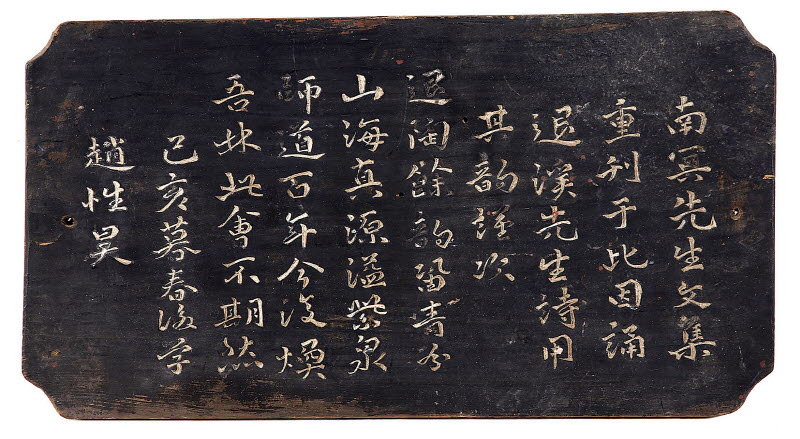 南冥先生文集
重刋于此因誦
退溪先生詩用
其韵謹次
退陶餘韵留青
山海真源溢紫泉
師道百年今復煥
吾林此會不期然
己亥暮春後学
趙性昊